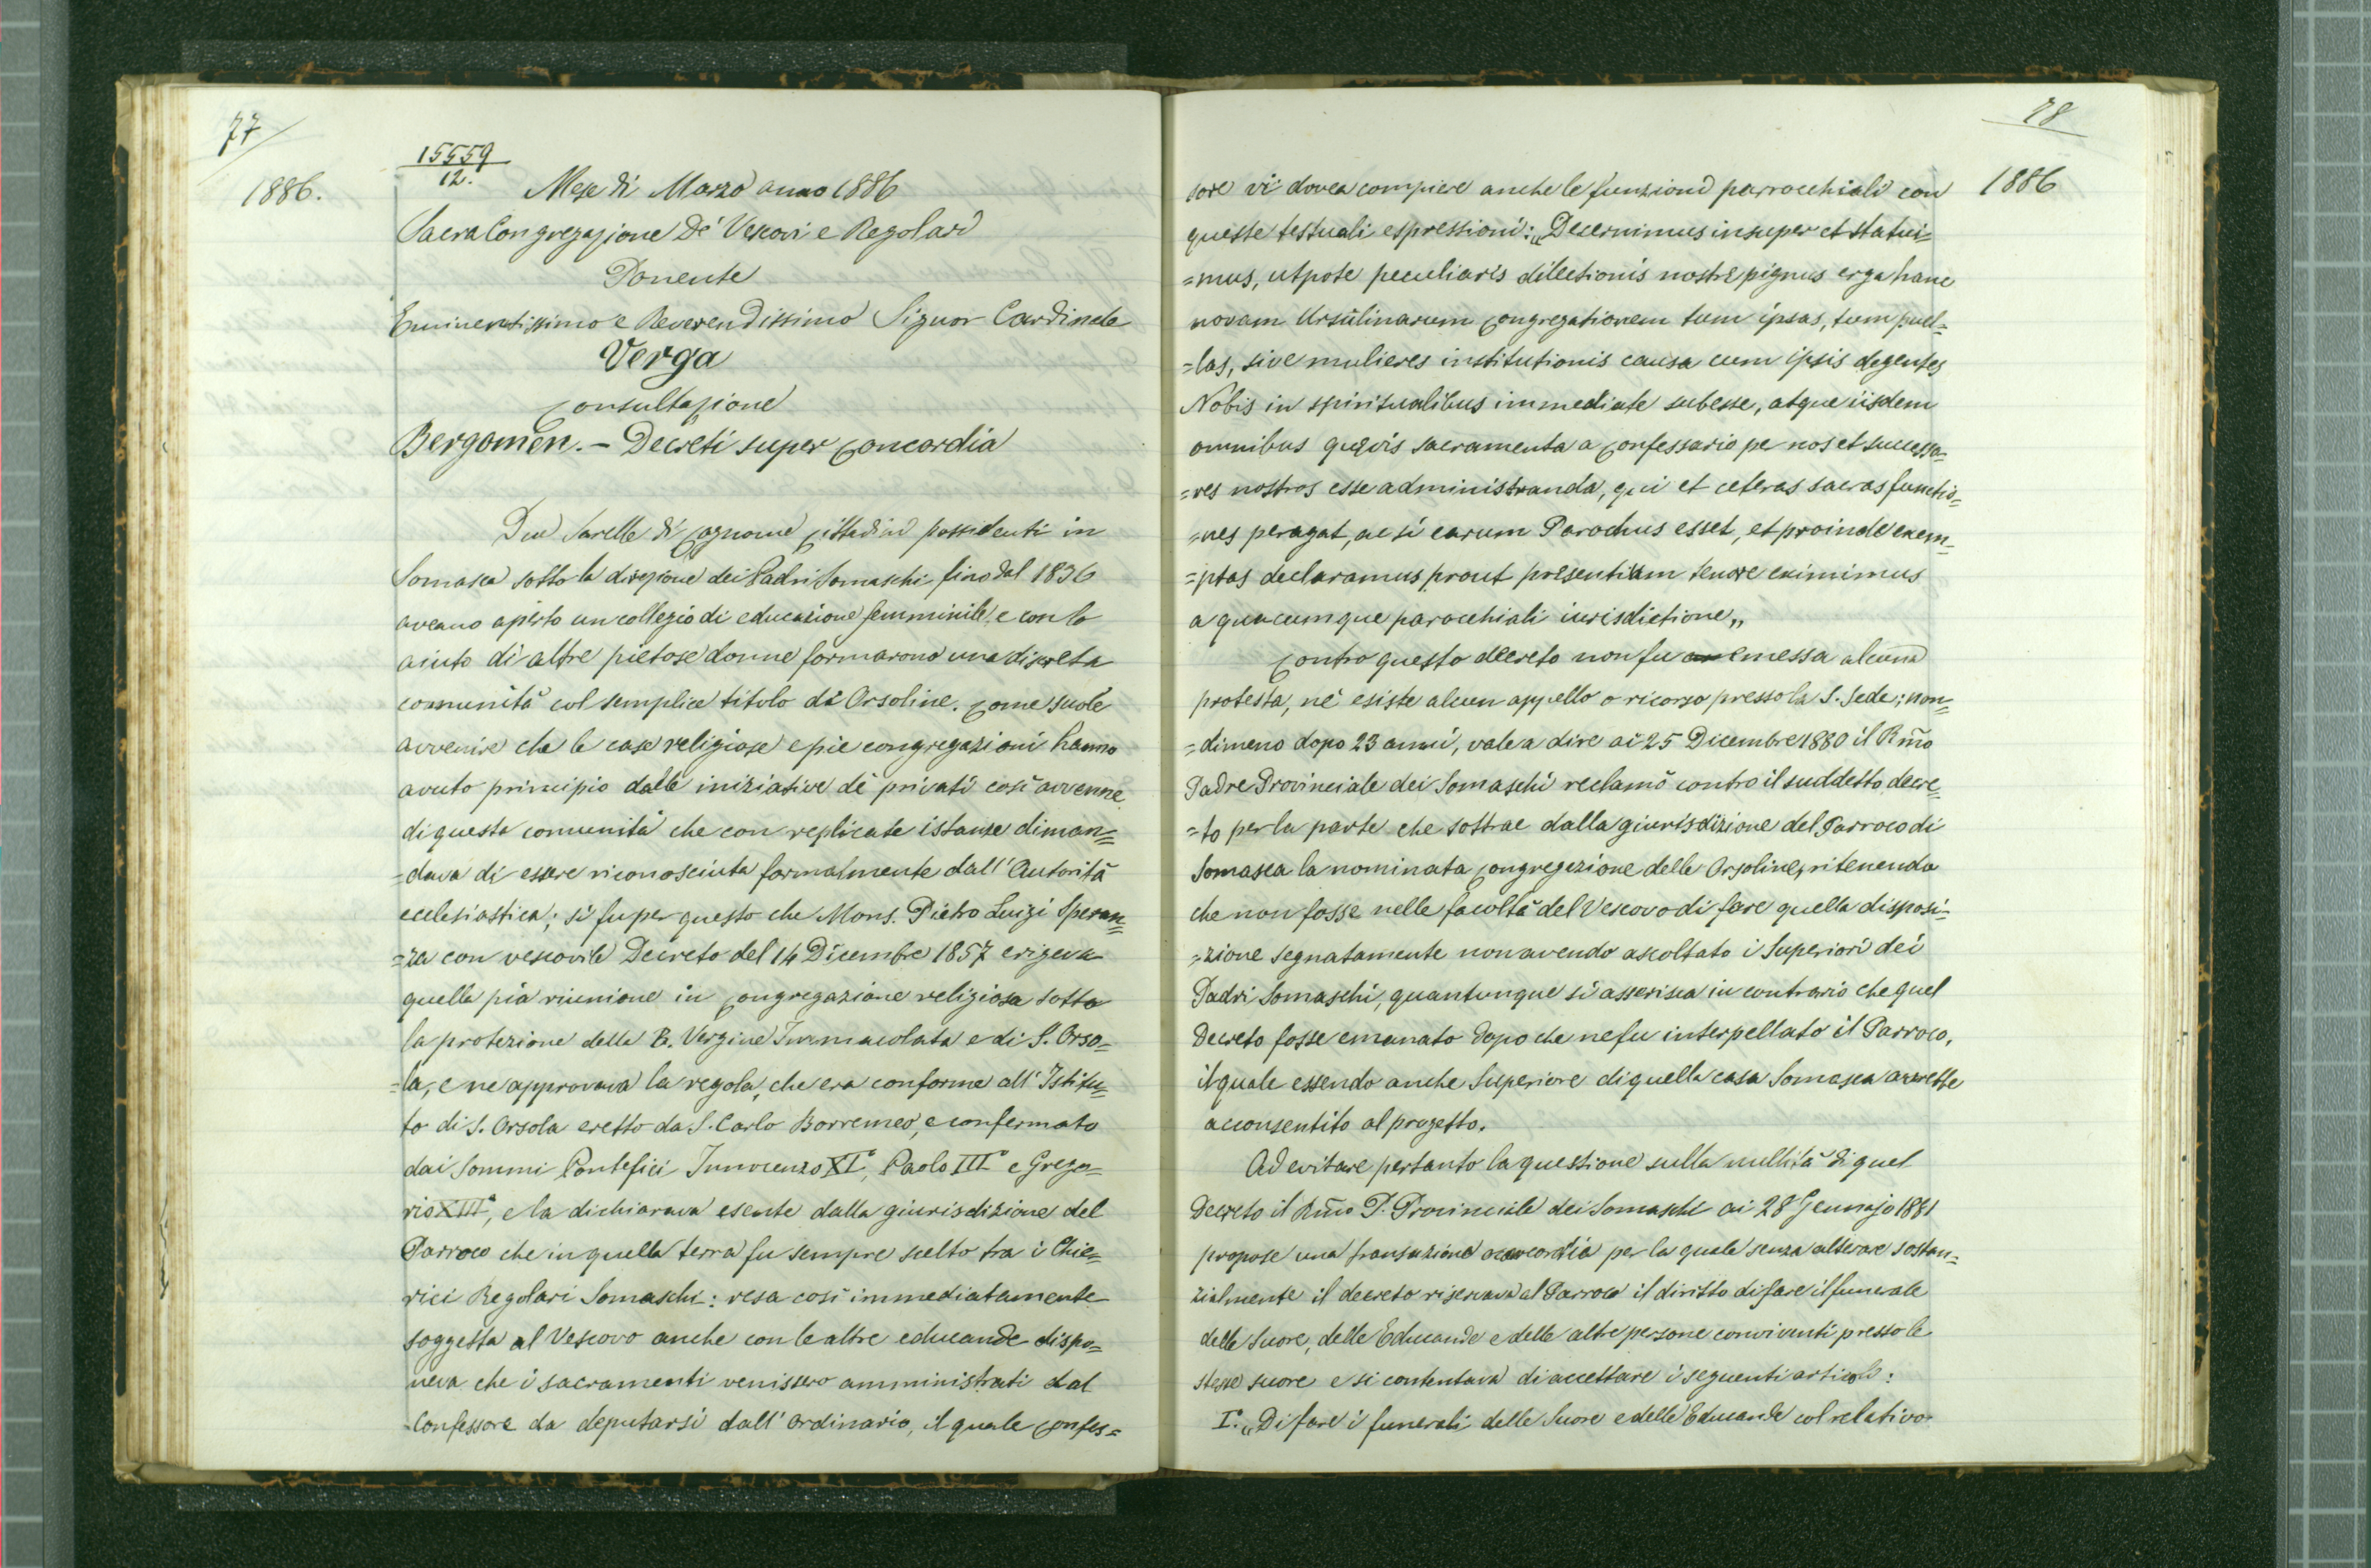 77
1886.
15559
12.
Mese di Marzo anno 1886
Sacra Congregazione De' Vescovi e Regolari
Ponente
Eminentissimo e Reverendissimo Signor Cardinale
Verga
Consultazione
Bergomen. - Decreti super Concordia
Due Sorelle di Cognome Cittadini possidenti in
Somasca sotto la direzione dei Padri Somaschi fino dal 1836
aveano aperto un collegio di educazione femminile, e con lo
aiuto di altre pietose donne formarono una discreta
comunità col semplice titolo di Orsoline. Come suole
avvenire che le case religiose e pie congregazioni hanno
avuto principio dalle iniziative dè privati così avvenne
di questa comunità che con replicate istanze diman=
=dava di essere riconosciuta formalmente dall' Autorità
ecclesiastica; si fu per questo che Mons. Pietro Luigi Speran=
=za con vescovile Decreto del 14 Dicembre 1857 erigeva
quella pia riunione in Congregazione religiosa sotto
la protezione della B. Vergine Immacolata e di S. Orso=
=la, e ne approvava la regola, che era conforme all' Istitu=
to di S. Orsola eretto da S. Carlo Borremeo, e confermato
dai Sommi Pontefici Innocenzo XI°, Paolo III° e Grego=
rio XIII°, e la dichiarava esente dalla giurisdizione del
Parroco che in quella terra fu sempre scelto tra i Chie=
rici Regolari Somaschi: resa così immediatamente
soggetta al Vescovo anche con le altre educande dispo=
neva che i sacramenti venissero amministrati dal
Confessore da deputarsi dall' Ordinario, il quale Confes=
78
1886
sore vi dovea compiere anche le funzioni parrocchiali con
queste testuali espressioni: „Decernimus insuper et statui=
=mus, utpote peculiaris dilectionis nostre pignus erga hanc
novam Ursulinarum Congregationem tum ipsas, tum puel=
=las, sive mulieres institutionis causa cum ipsis degentes
Nobis in spiritualibus immediate subesse, atque iisdem
omnibus quævis sacramenta a Confessario pe nos et successo=
=res nostros esse administranda, qui et ceteras sacras functio=
=nes peragat, ac si earum Parochus esset, et proinde exem=
=ptas declaramus prout presentium tenore eximimus
a quacumque parocchiali iurisdictione„
Contro questo decreto non fu emessa alcuna
protesta, nè esiste alcun appello o ricorso presso la S. Sede; non=
=dimeno dopo 23 anni, vale a dire ai 25 Dicembre 1880 il Rm̃o
Padre Provinciale dei Somaschi reclamò contro il suddetto decre=
=to per la parte che sottrae dalla giurisdizione del Parroco di
Somasca la nominata Congregazione delle Orsoline, ritenendo
che non fosse nelle facoltà del Vescovo di fare quella disposi=
=zione segnatamente non avendo ascoltato i Superiori dei
Padri Somaschi, quantunque si asserisca in contrario che quel
Decreto fosse emanato dopo che ne fu interpellato il Parroco,
il quale essendo anche Superiore di quella casa Somasca avrebbe
acconsentito al progetto.
Ad evitare pertanto la questione sulla nullità di quel
Decreto il Rm̃o P. Provinciale dei Somaschi ai 28 Gennajo 1881
propose una transazione o concordia per la quale senza alterare sostan=
zialmente il decreto riservava al Parroco il diritto di fare il funerale
delle Suore, delle Educande e delle altre persone conviventi presso le
stesse suore e si contentava di accettare i seguenti articoli:
I°. „Di fare i funerali delle Suore e delle Educande col relativo